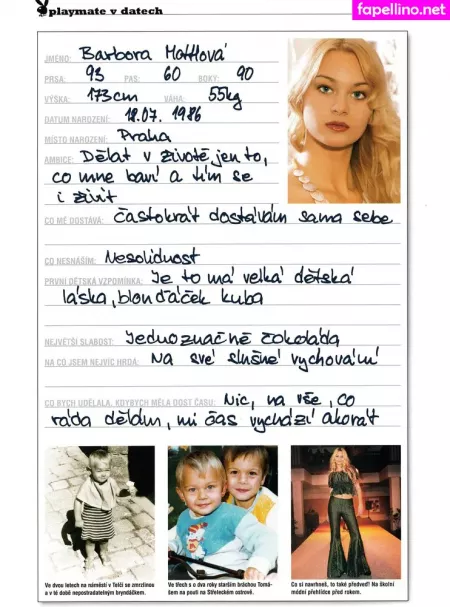 fapellino.net
playmate v datech
JMÉNO: Barbora Mottlová
PRSA: 93 PAS: 60 BOKY: 90
VÝŠKA: 173cm VÁHA: 55kg
DATUM NAROZENÍ: 18.07. 1986
MÍSTO NAROZENÍ: Praha
AMBICE: Dělat v životě jen to,
co mne baví a tím se
i živit
CO MĚ DOSTÁVÁ: Častokrát dostávám sama sebe
CO NESNÁŠÍM: Nesolidnost
PRVNÍ DĚTSKÁ VZPOMÍNKA: Je to má velká dětská
láska, blonďáček kuba
NEJVĚTŠÍ SLABOST: Jednoznačně čokoláda
NA CO JSEM NEJVÍC HRDÁ: Na své slušné vychování
CO BYCH UDĚLALA, KDYBYCH MĚLA DOST ČASU: Nic, na vše, co
ráda dělám, mi čas vychází akorát
Ve dvou letech na náměstí v Telči se zmrzlinou
a v té době nepostradatelným bryndáčkem.
Ve třech s o dva roky starším bráchou Tomá-
šem na pouti na Střeleckém ostrově.
Co si navrhneš, to také předveď! Na školní
módní přehlídce před rokem.